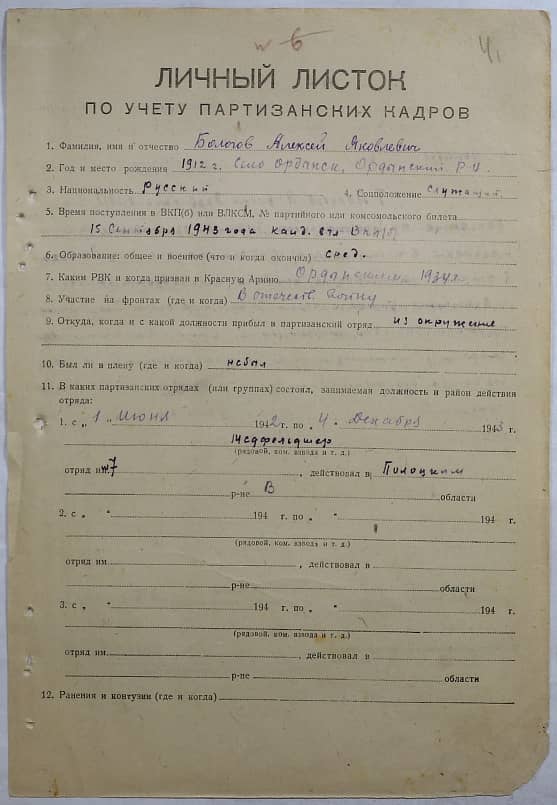 6
4,
ЛИЧНЫЙ ЛИСТОК
ПО УЧЕТУ ПАРТИЗАНСКИХ КАДРОВ
1. Фамилия, имя и отчество Бологов Алексей Яковлевич
2. Год и место рождения 1912 г. Село Ордынск, Ордынский Р-н.
3. Национальность Русский 4. Соцположение служащий
5. Время поступления в ВКП(б) или ВЛКСМ, № партийного или комсомольского билета
15 Сентября 1943 года канд. ВКП(б)
6. Образование: общее и военное (что и когда окончил) сред.
7. Каким РВК и когда призван в Красную Армию Ордынским 1934г
8. Участие на фронтах (где и когда) В отечеств. войну
9. Откуда, когда и с какой должности прибыл в партизанский отряд из окружения
10. Был ли в плену (где и когда) небыл
11. В каких партизанских отрядах (или группах) состоял, занимаемая должность и район действия
отряда:
1. с „ 1 " Июня 1942 г. по „ 4 " Декабря 1943 г.
Медфельдшер
(рядовой, ком. взвода и т. д.)
отряд им. №7, действовал в Полоцким
р-не В области
2. с „ " 194 г. по „ " 194 г.
(рядовой, ком. взвода и т. д.)
отряд им , действовал в
р-не области
3. с „ " 194 г. по „ " 194 г.
(рядовой, ком. взвода и т. д.)
отряд им , действовал в
р-не области
12. Ранения и контузии (где и когда)